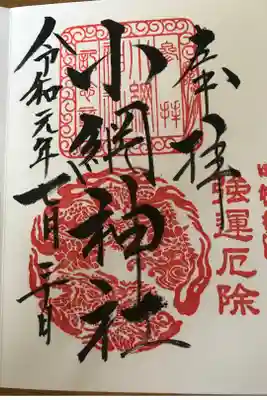 奉拝
強運厄除
小網神社
令和元年七月三十日